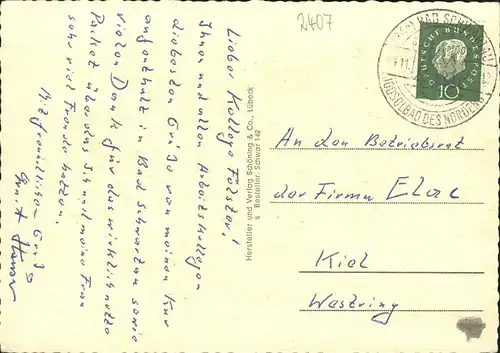 2407
Lieber Kollege Förster!
Ihnen und allen Arbeitskollegen
die besten Grüße von meinem Kur
aufenthalt in Bad Schwartau sowie
vielen Dank für das wirklich nette
Paket über das sich und meine Frau
sehr viel Freude hatten.
Mit freundlichen Gruß
Hersteller und Verlag Schöning & Co., Lübeck
s Bestellnr. Schwar 142
DEUTSCHE BUNDESPOST
10
BAD SCHWARTAU
JODSOLBAD DES NORDENS
An den Betriebsrat
der Firma Elac
Kiel
Westring